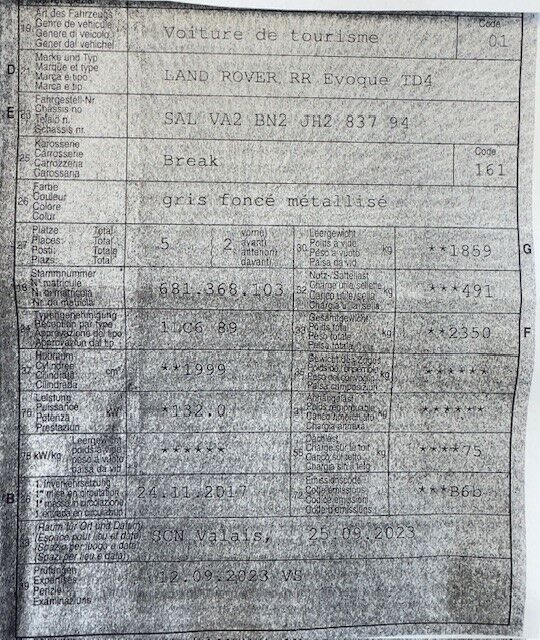 Art des Fahrzeugs
Genre de véhicule
Genere di veicolo
Gener dal vehichel
19
Voiture de tourisme
Code
01
D
Marke und Typ
Marque et type
Marca e tipo
Marca e tip
LAND ROVER RR Evoque TD4
E
Fahrgestell-Nr
Châssis no
Telaio n.
Schassis nr.
23
SAL VA2 BN2 JH2 837 94
Karosserie
Carrosserie
Carrozzeria
Carossaria
25
Break
Code
161
Farbe
Couleur
Colore
Colur
26
gris foncé métallisé
Plätze Total
Places: Total
Posti: Totale
Plazs: Total
27
5
vorne
avant
anteriori
davant
2
Leergewicht
Poids à vide
Peso a vuoto
Paisa da vid
30
kg
**1859
G
Stammnummer
N° matricule
N. di matricola
Nr. da matricla
18
681.368.103
Nutz-/Sattellast
Charge utile/sellette
Carico utile/sella
Chargia util/sella
32
kg
***491
Typengenehmigung
Réception par type
Approvazione del tipo
Approvaziun dal tip
24
1LC6 89
Gesamtgewicht
Poids total
Peso totale
Paisa totala
33
kg
**2350
F
Hubraum
Cylindrée
Cilindrata
Cilindrada
37
cm³
**1999
Gewicht des Zuges
Poids de l'ensemble
Peso del convoglio
Paisa cumposiziun
35
kg
******
Leistung
Puissance
Potenza
Prestaziun
76
kW
*132.0
Anhängelast
Poids remorquable
Peso rimorchiabile
Chargia annexa
31
kg
******
78
kW/kg
Leergewicht
poids à vide
peso a vuoto
paisa da vid
******
Dachlast
Charge sur le toit
Carico sul tetto
Chargia sin il tetg
55
kg
****75
B
1. Inverkehrsetzung
1re mise en circulation
1a messa in circolazione
1. entrada en circulaziun
36
24.11.2017
Emissionscode
Code émissions
Codice emissioni
Code d'emissiuns
72
***B6b
(Raum für Ort und Datum)
(Espace pour lieu et date)
(Spazio per luogo e data)
(Spazi per lieu e data)
38
SCN Valais, 25.09.2023
Prüfungen
Expertises
Perizie
Examinaziuns
39
12.09.2023 VS